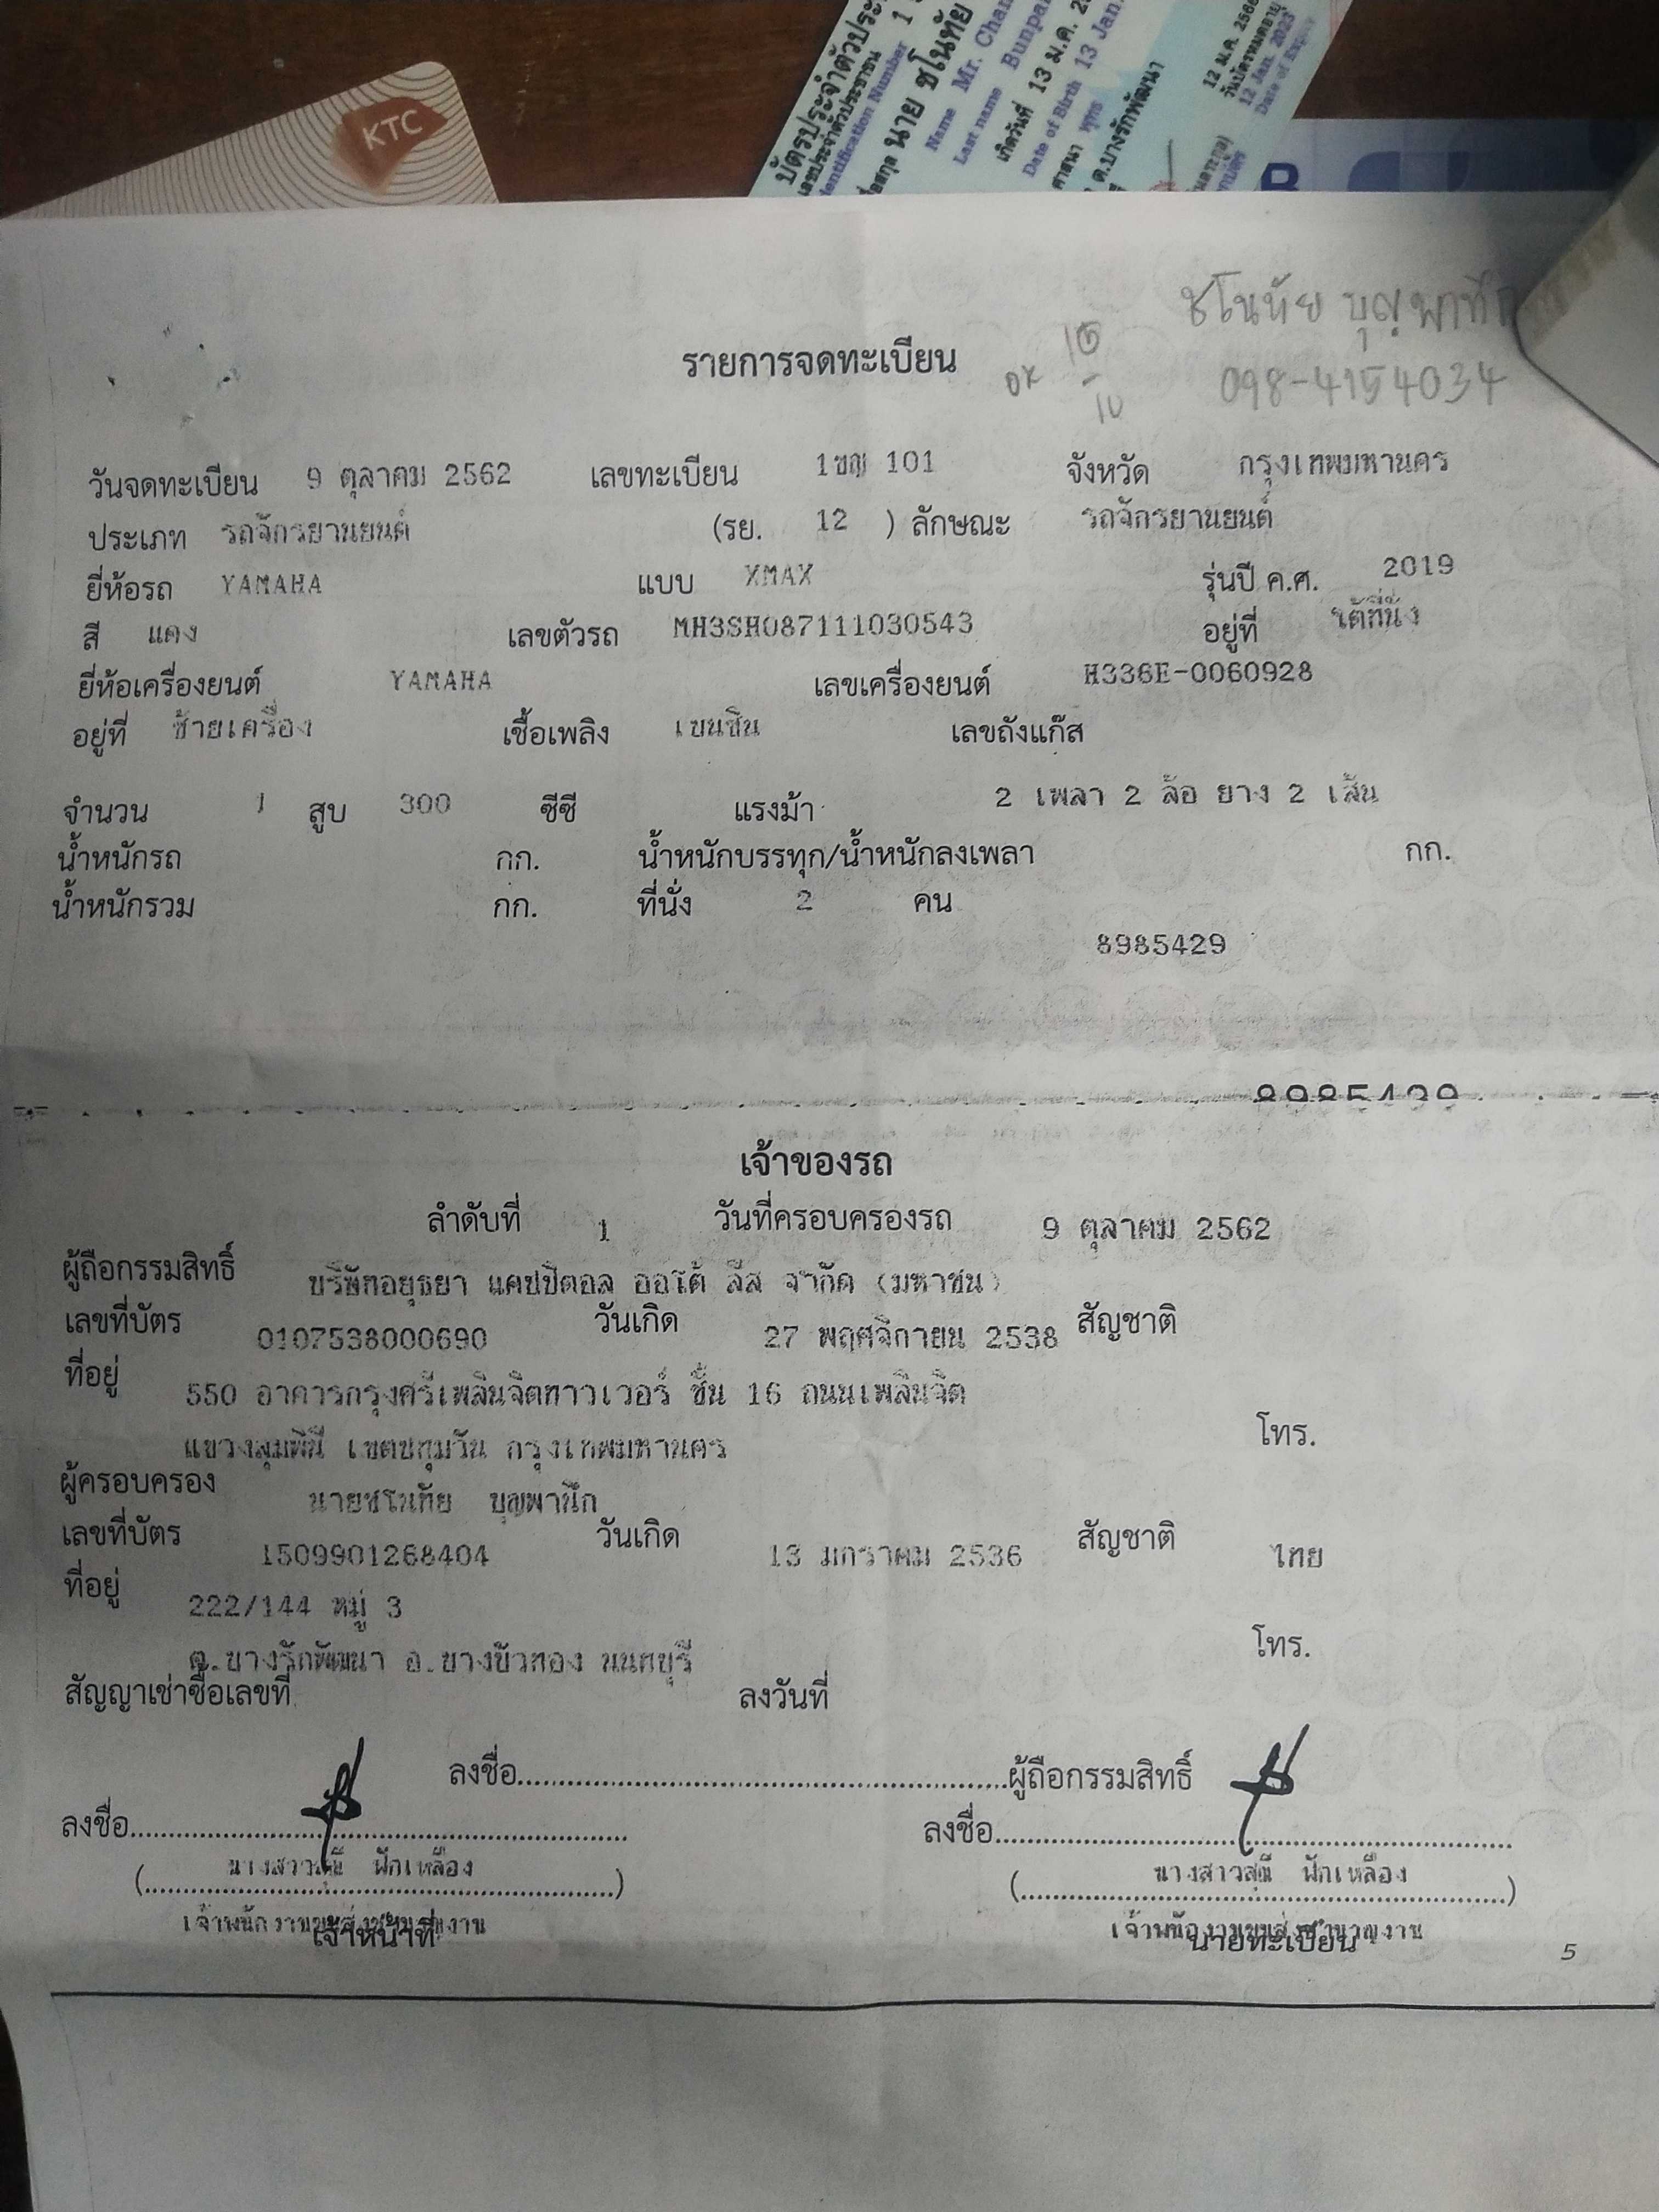 KTC
บัตรประจำตัวประ
เลขประจำตัวประชาชน 1
Identification Number
นาย ชโนทัย
Name Mr. Chan
Last name Bunpa
เกิดวันที่ 13 ม.ค. 25
Date of Birth 13 Jan.
ศาสนา พุทธ
ต.บางรักพัฒนา
12 ม.ค. 2566
วันบัตรหมดอายุ
12 Jan. 2023
Date of Expiry
ชโนทัย บุญพานิก
รายการจดทะเบียน
098-4154034
วันจดทะเบียน 9 ตุลาคม 2562 เลขทะเบียน 1ขญ 101 จังหวัด กรุงเทพมหานคร
ประเภท รถจักรยานยนต์ (รย. 12 ) ลักษณะ รถจักรยานยนต์
ยี่ห้อรถ YAMAHA แบบ XMAX รุ่นปี ค.ศ. 2019
สี แดง เลขตัวรถ MH3SH087111030543 อยู่ที่ ใต้ที่นั่ง
ยี่ห้อเครื่องยนต์ YAMAHA เลขเครื่องยนต์ H336E-0060928
อยู่ที่ ซ้ายเครื่อง เชื้อเพลิง เบนซิน เลขถังแก๊ส
จำนวน 1 สูบ 300 ซีซี แรงม้า 2 เพลา 2 ล้อ ยาง 2 เส้น
น้ำหนักรถ กก. น้ำหนักบรรทุก/น้ำหนักลงเพลา กก.
น้ำหนักรวม กก. ที่นั่ง 2 คน
8985429
8985429
เจ้าของรถ
ลำดับที่ 1 วันที่ครอบครองรถ 9 ตุลาคม 2562
ผู้ถือกรรมสิทธิ์ บริษัทอยุธยา แคปปิตอล ออโต้ ลีส จำกัด (มหาชน)
เลขที่บัตร 0107538000690 วันเกิด 27 พฤศจิกายน 2538 สัญชาติ
ที่อยู่ 550 อาคารกรุงศรีเพลินจิตทาวเวอร์ ชั้น 16 ถนนเพลินจิต
แขวงลุมพินี เขตปทุมวัน กรุงเทพมหานคร โทร.
ผู้ครอบครอง นายชโนทัย บุญพานิก
เลขที่บัตร 1509901268404 วันเกิด 13 มกราคม 2536 สัญชาติ ไทย
ที่อยู่ 222/144 หมู่ 3
ต.บางรักพัฒนา อ.บางบัวทอง นนทบุรี โทร.
สัญญาเช่าซื้อเลขที่ ลงวันที่
ลงชื่อ ผู้ถือกรรมสิทธิ์
ลงชื่อ ลงชื่อ
(นางสาวสุณี ฟักเหลือง) (นางสาวสุณี ฟักเหลือง)
เจ้าพนักงานขนส่งชำนาญงาน เจ้าพนักงานขนส่งชำนาญงาน
เจ้าหน้าที่ นายทะเบียน
5